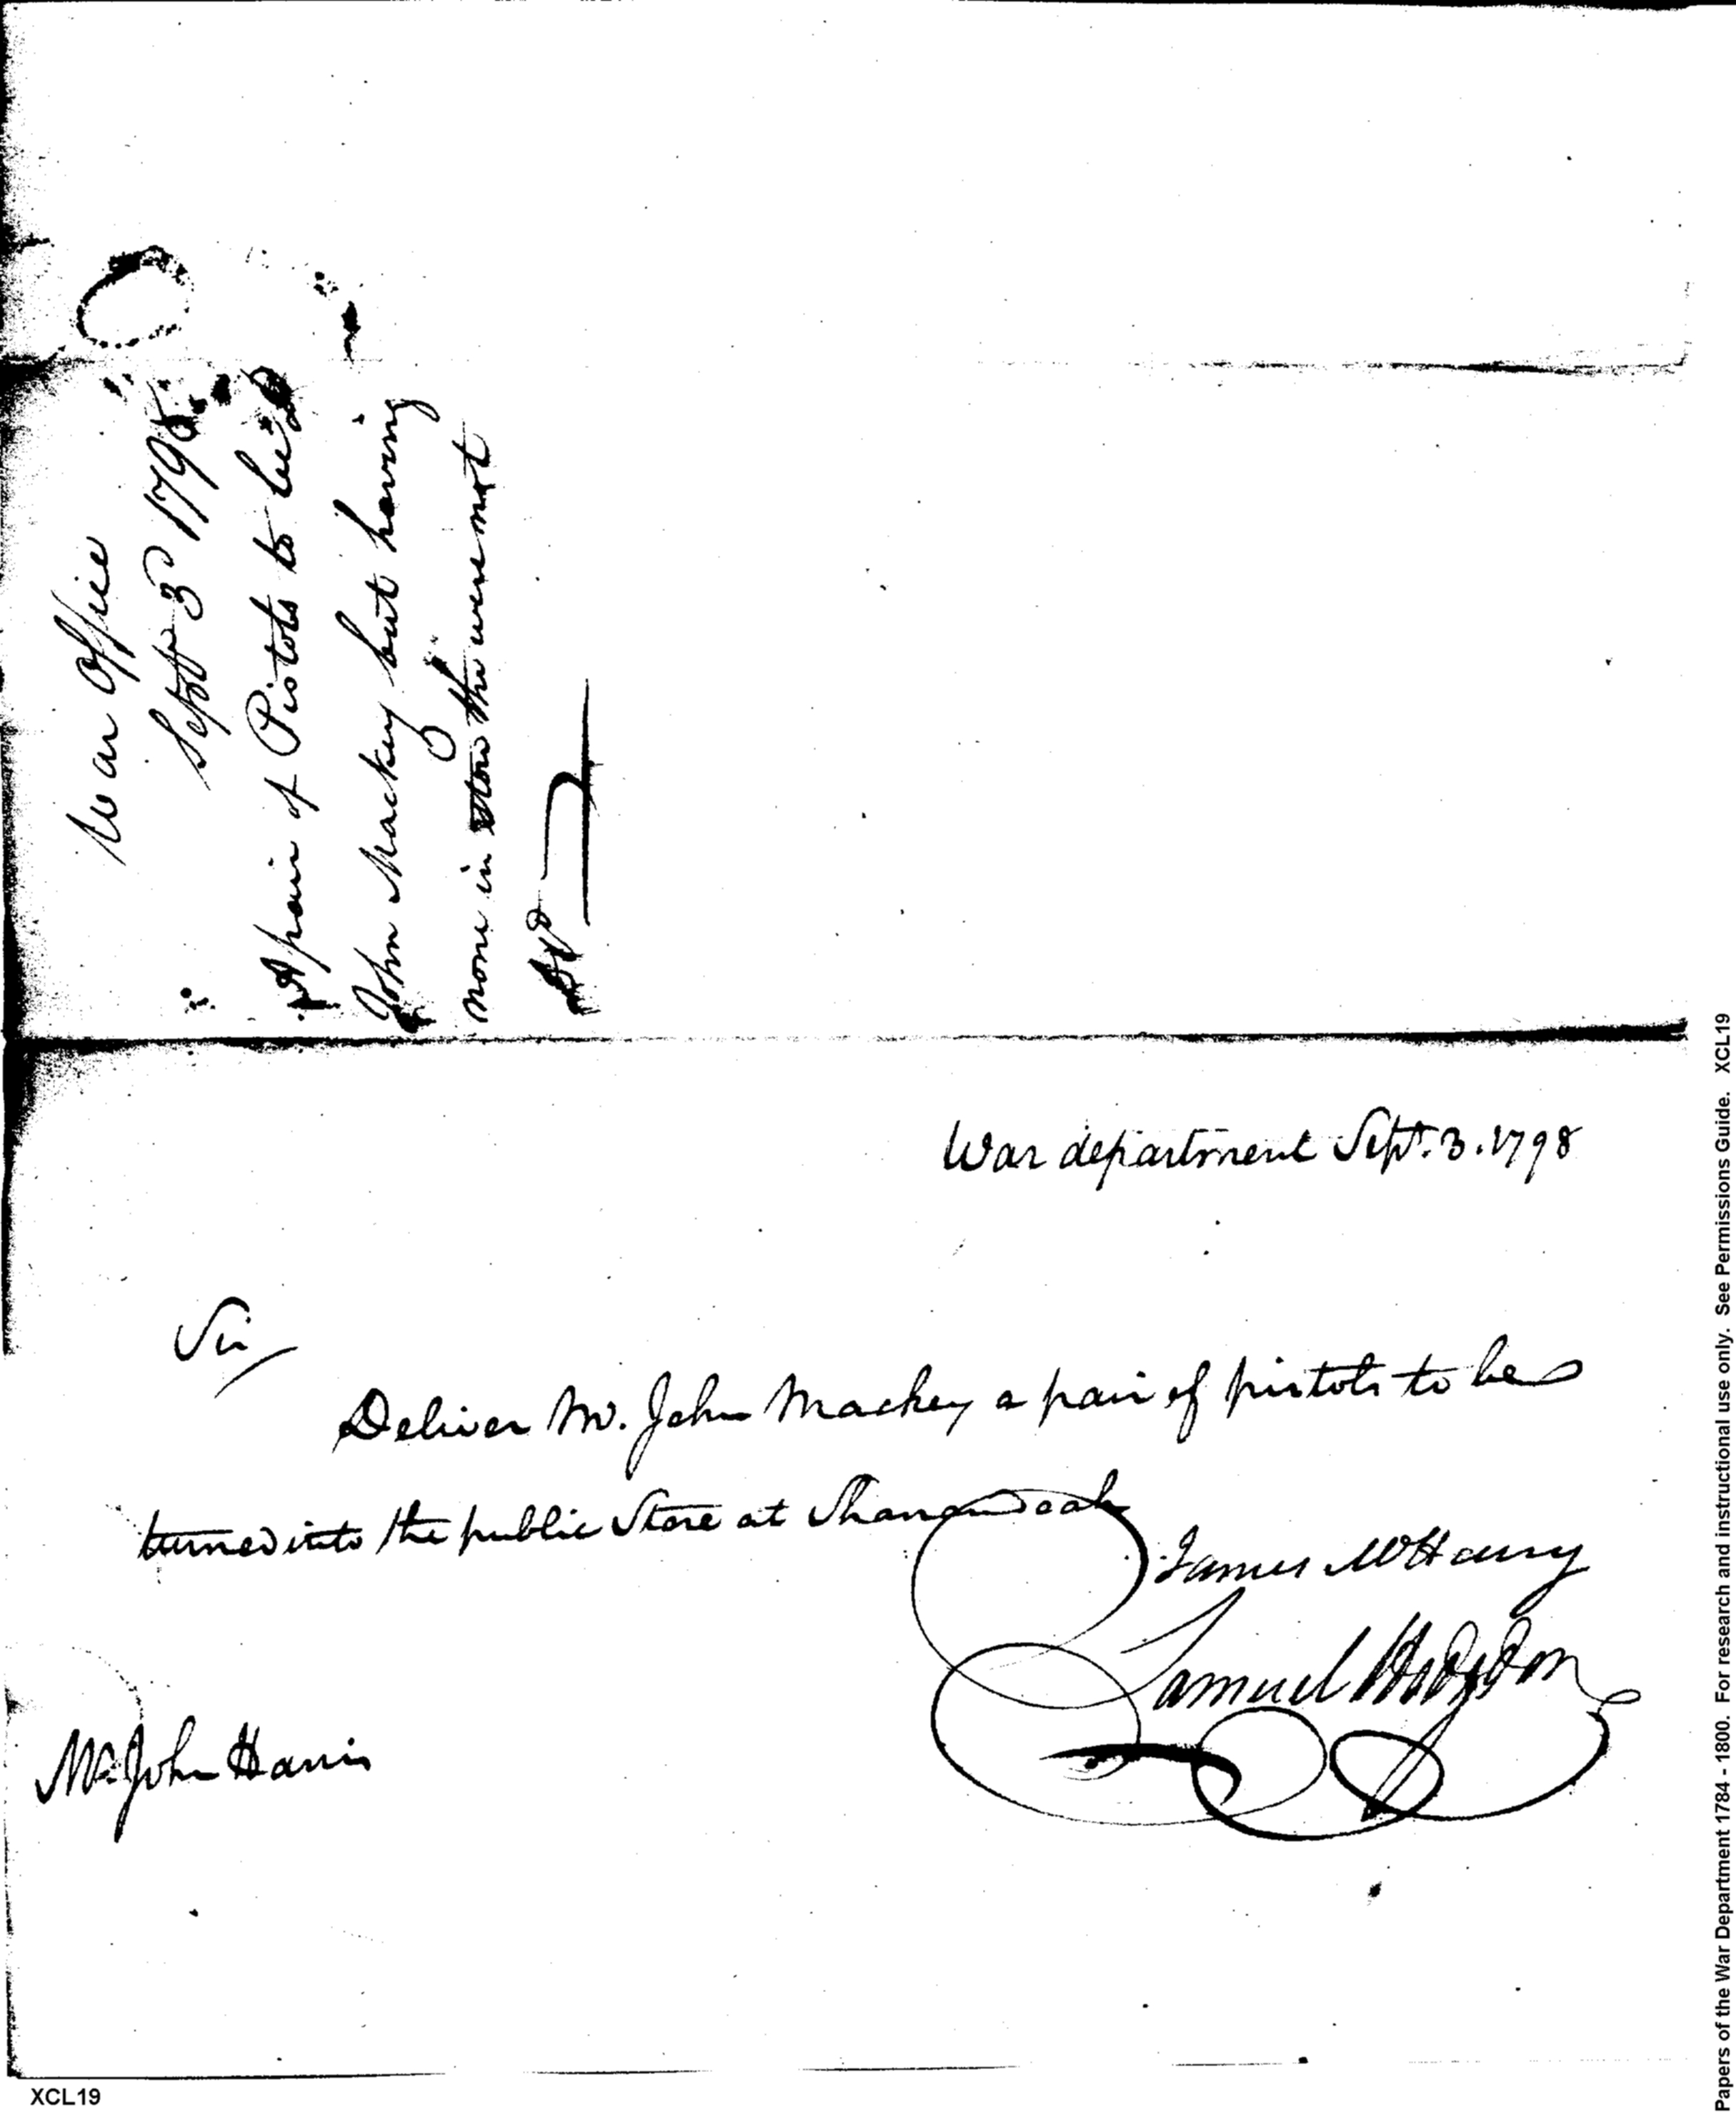 War Office
Sept 3d 1798
A pair of Pistols to be dd
John Mackey but having
none in store the were not
dd
War department Sept. 3. 1798
Sir
Deliver Mr. John Mackey a pair of pistols to be
turned into the public Store at Shanandoah
James McHenry
Samuel Hodgdon
Mr. John Harris
XCL19
Papers of the War Department 1784 - 1800. For research and instructional use only. See Permissions Guide. XCL19